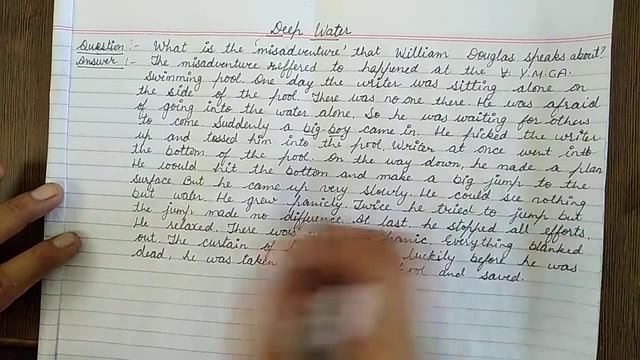 Deep Water
Question:- What is the 'misadventure' that William Douglas speaks about?
Answer:- The misadventure reffered to happened at the Y.M.CA.
Swimming pool. One day the writer was sitting alone on
the side of the pool. There was no one there. He was afraid
of going into the water alone. So he was waiting for others
to come. Suddenly a big-boy came in. He picked the writer
up and tossed him into the pool. Writer at once went into
the bottom of the pool. On the way down, he made a plan
He would hit the bottom and make a big jump to the
surface. But he came up very slowly. He could see nothing
but water. He grew panicly. Twice he tried to jump but
the jump made no difference. At last, he stopped all efforts.
He relaxed. There was panic. Everything blanked
out. The curtain of luckily before he was
dead, he was taken and saved.